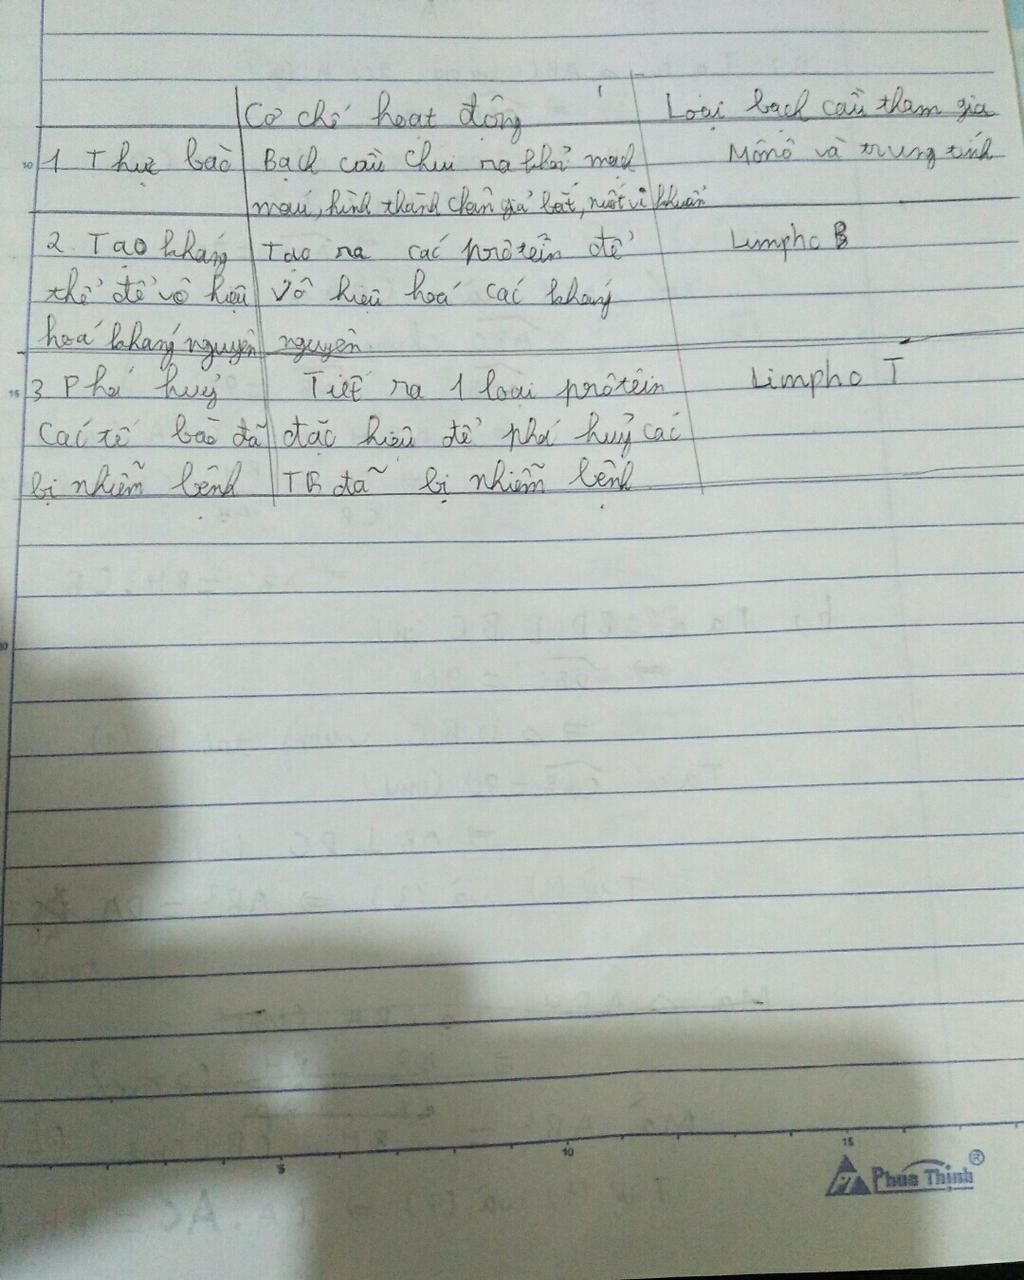 Cơ chế hoạt động Loại bạch cầu tham gia
10 1 Thực bào Bạch cầu chui ra khỏi mạch Mônô và trung tính
máu, hình thành chân giả bắt, nuốt vi khuẩn
2. Tạo kháng Tạo ra các prôtêin để Limpho B
thể để vô hiệu Vô hiệu hoá các kháng
hoá kháng nguyên nguyên
15 3 Phá huỷ Tiết ra 1 loại prôtêin Limpho T
Các tế bào đã đặc hiệu để phá huỷ các
bị nhiễm bệnh TB đã bị nhiễm bệnh
5 10 15
Phuc Thinh ®